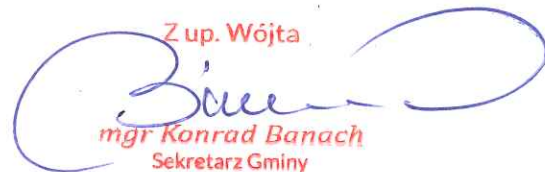 Z up. Wójta
mgr Konrad Banach
Sekretarz Gminy